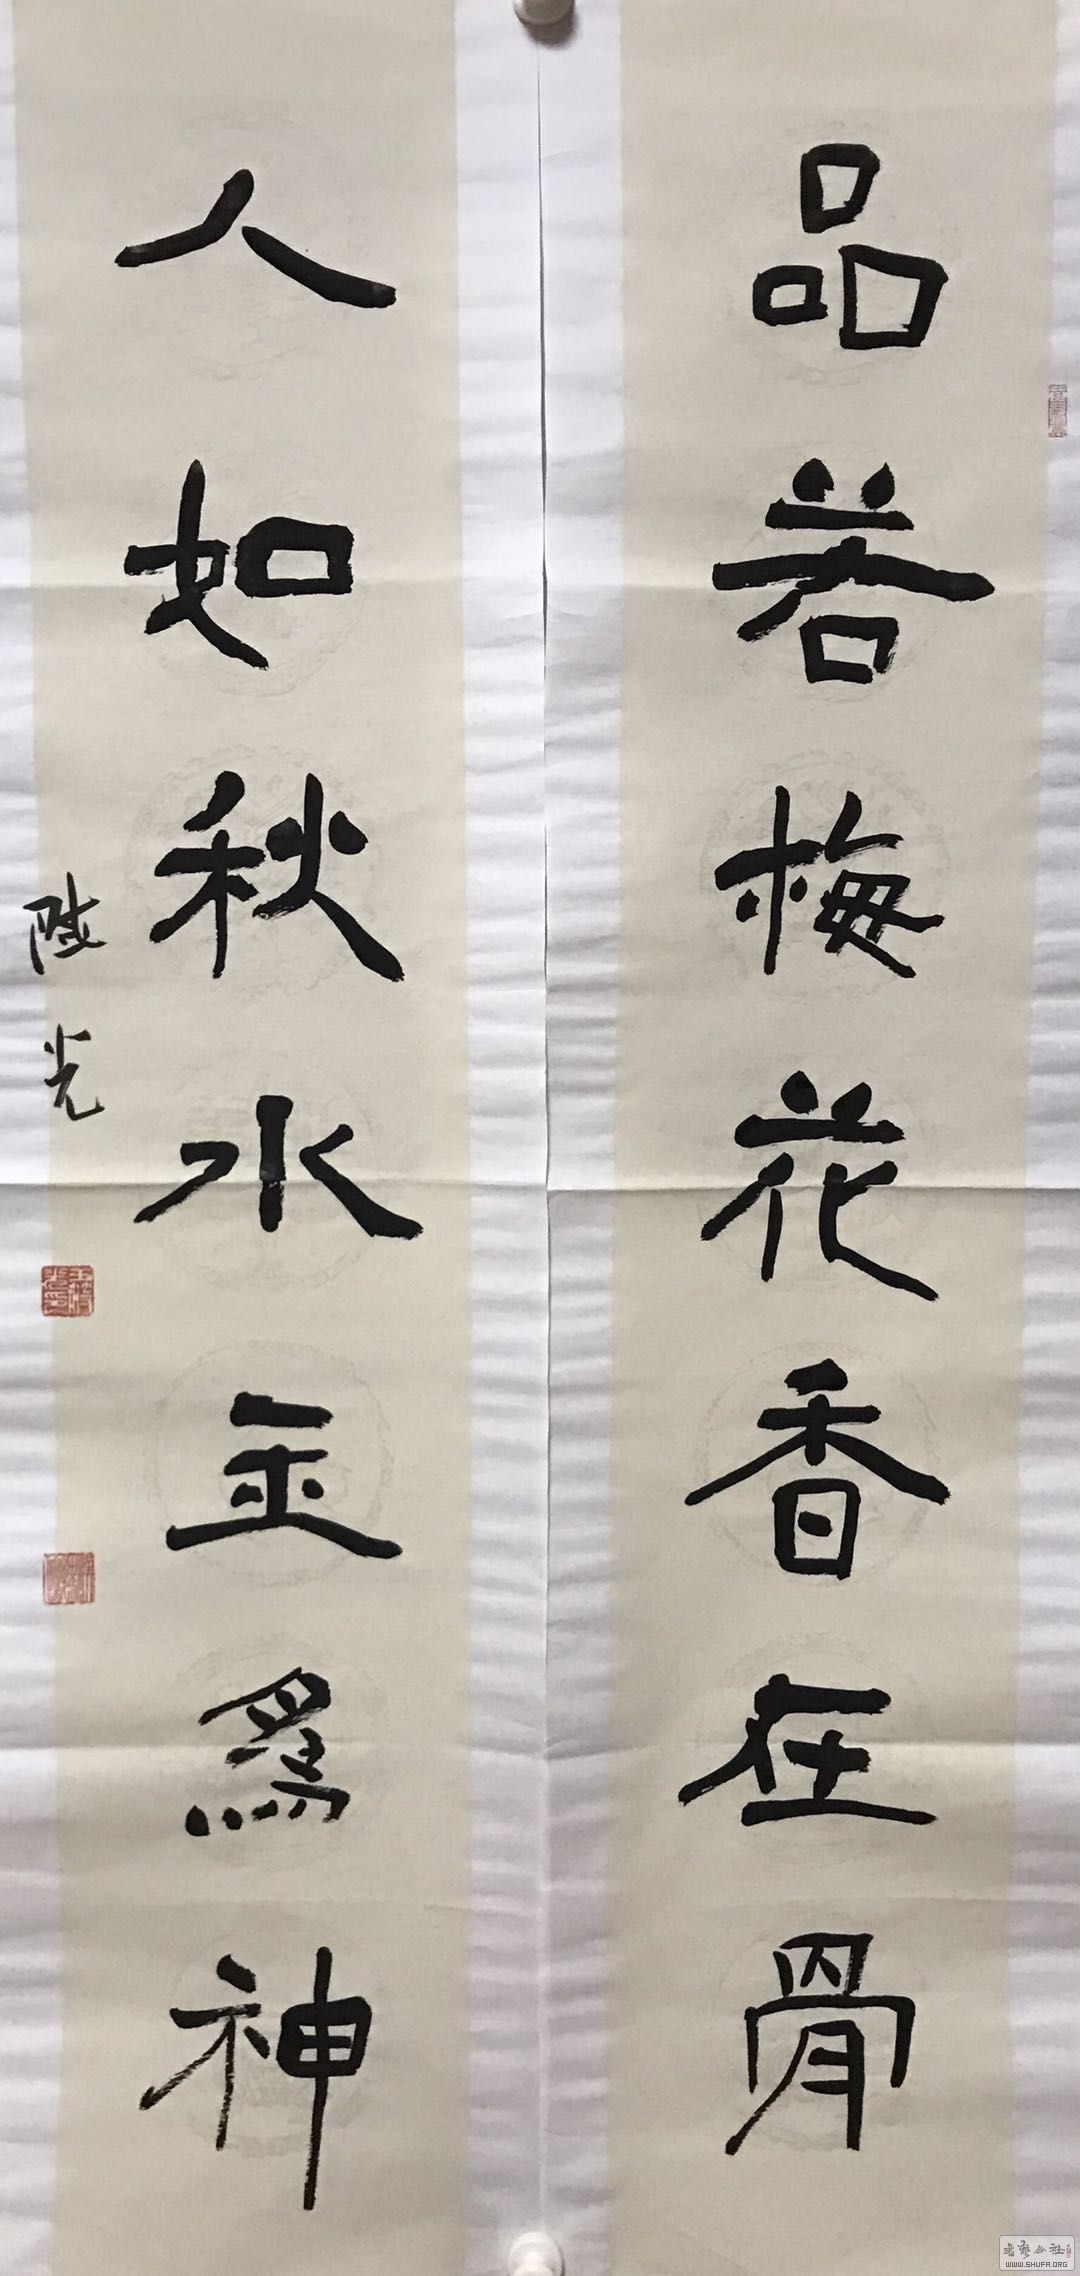 品若梅花香在骨
人如秋水玉爲神
光
書藝公社
WWW.SHUFA.ORG